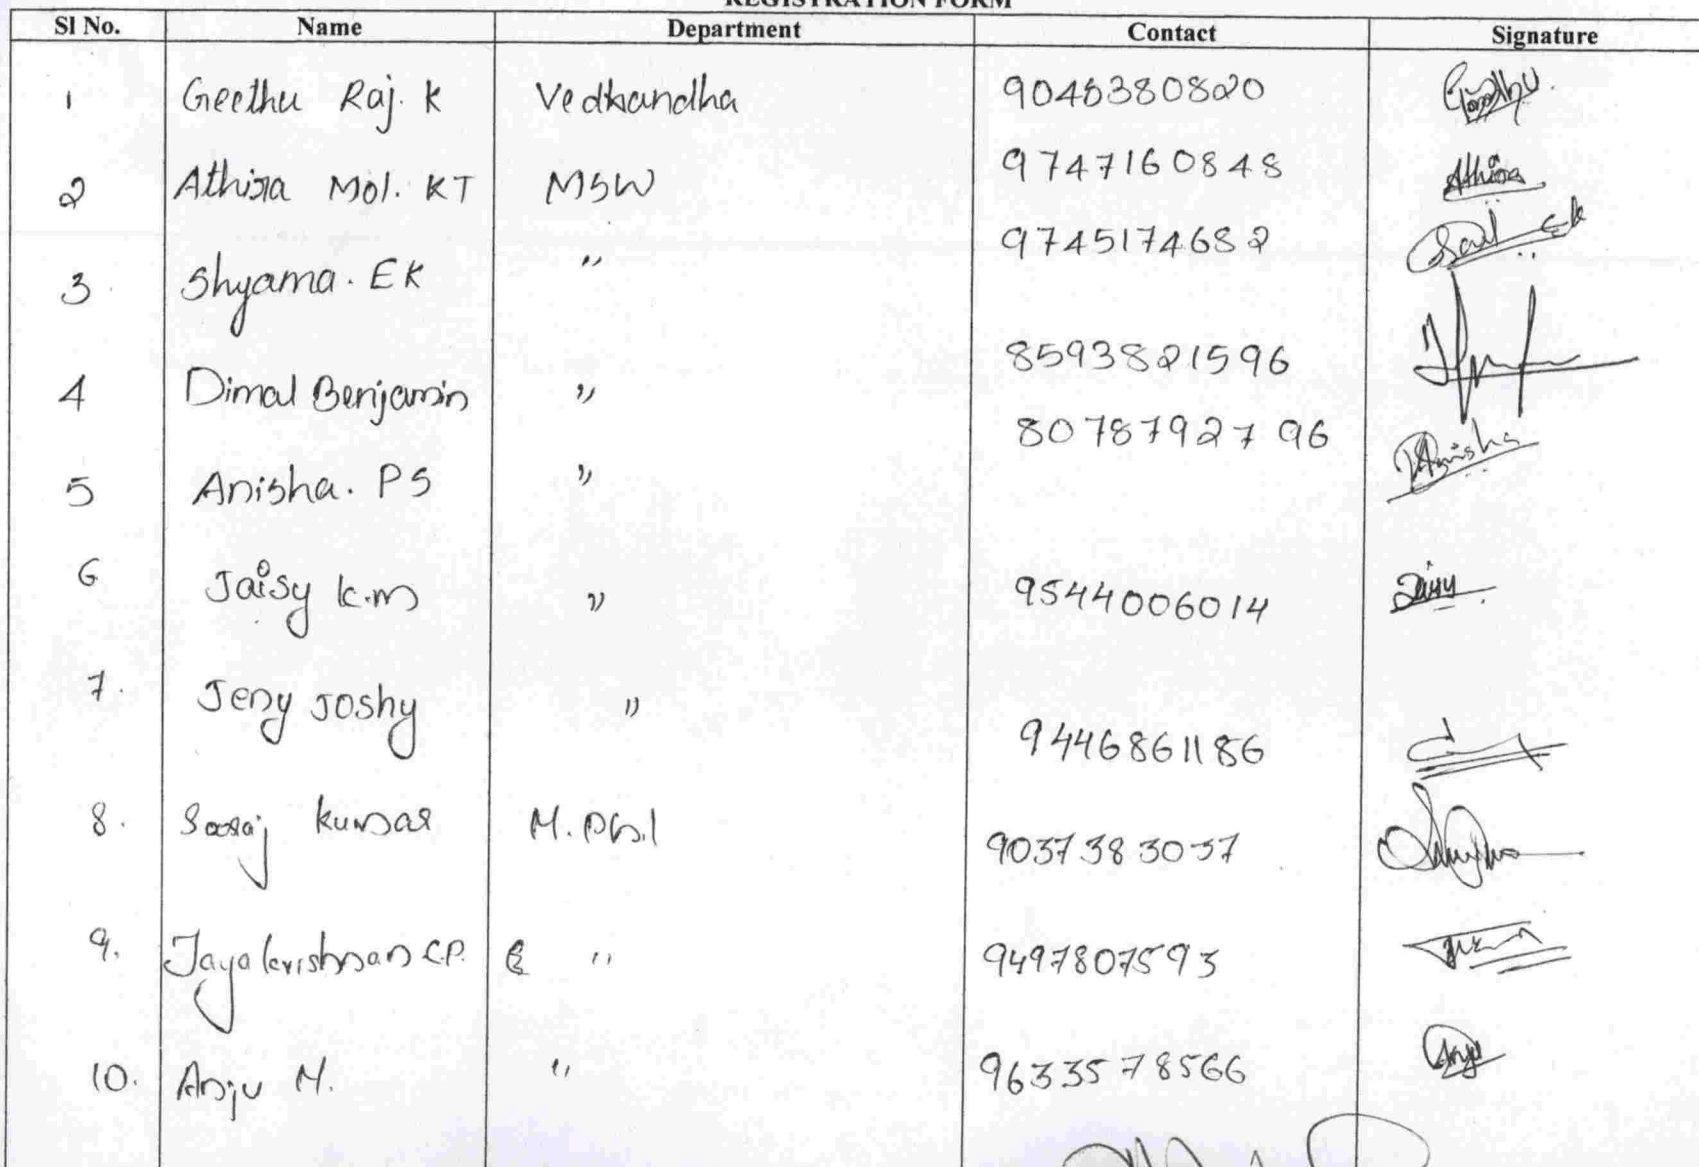 REGISTRATION FORM
Sl No. Name Department Contact Signature
1 Geethu Raj. K Vedhandha 9046380820
2 Athira Mol. KT MSW 9747160848 Athira
3 Shyama. EK " 9745174682
4 Dimal Benjamin " 8593821596
5 Anisha. PS " 8078792796 Anisha
6 Jaisy k.m " 9544006014 Jaisy
7. Jeny Joshy " 9446861186
8. Sooraj kumar M.Phil 9037383037
9. Jayakrishnan C.P. " 9497807593
10. Anju M. " 9633578566 Anju